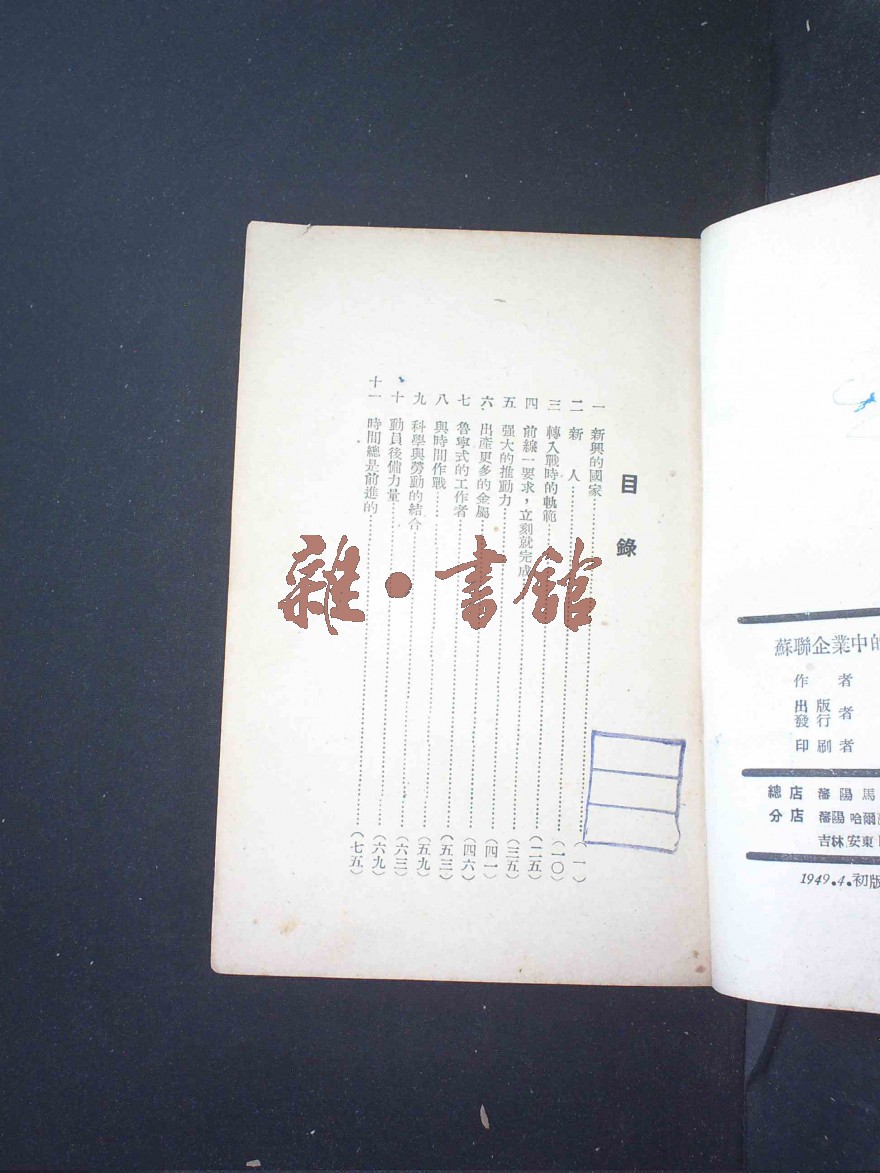 蘇聯企業中的
作者
出版
發行者
印刷者
總店 瀋陽馬
分店 瀋陽 哈爾
吉林 安東
1949.4.初版
目錄
一 新興的國家……(一)
二 新人……(一〇)
三 轉入戰時的軌範……(二五)
四 前線一要求，立刻就完成……(三五)
五 强大的推動力……(四一)
六 出產更多的金屬……(四六)
七 魯寧式的工作者……(五三)
八 與時間作戰……(五九)
九 科學與勞動的結合……(六三)
十 動員後備力量……(六九)
十一 時間總是前進的……(七五)
雜·書館